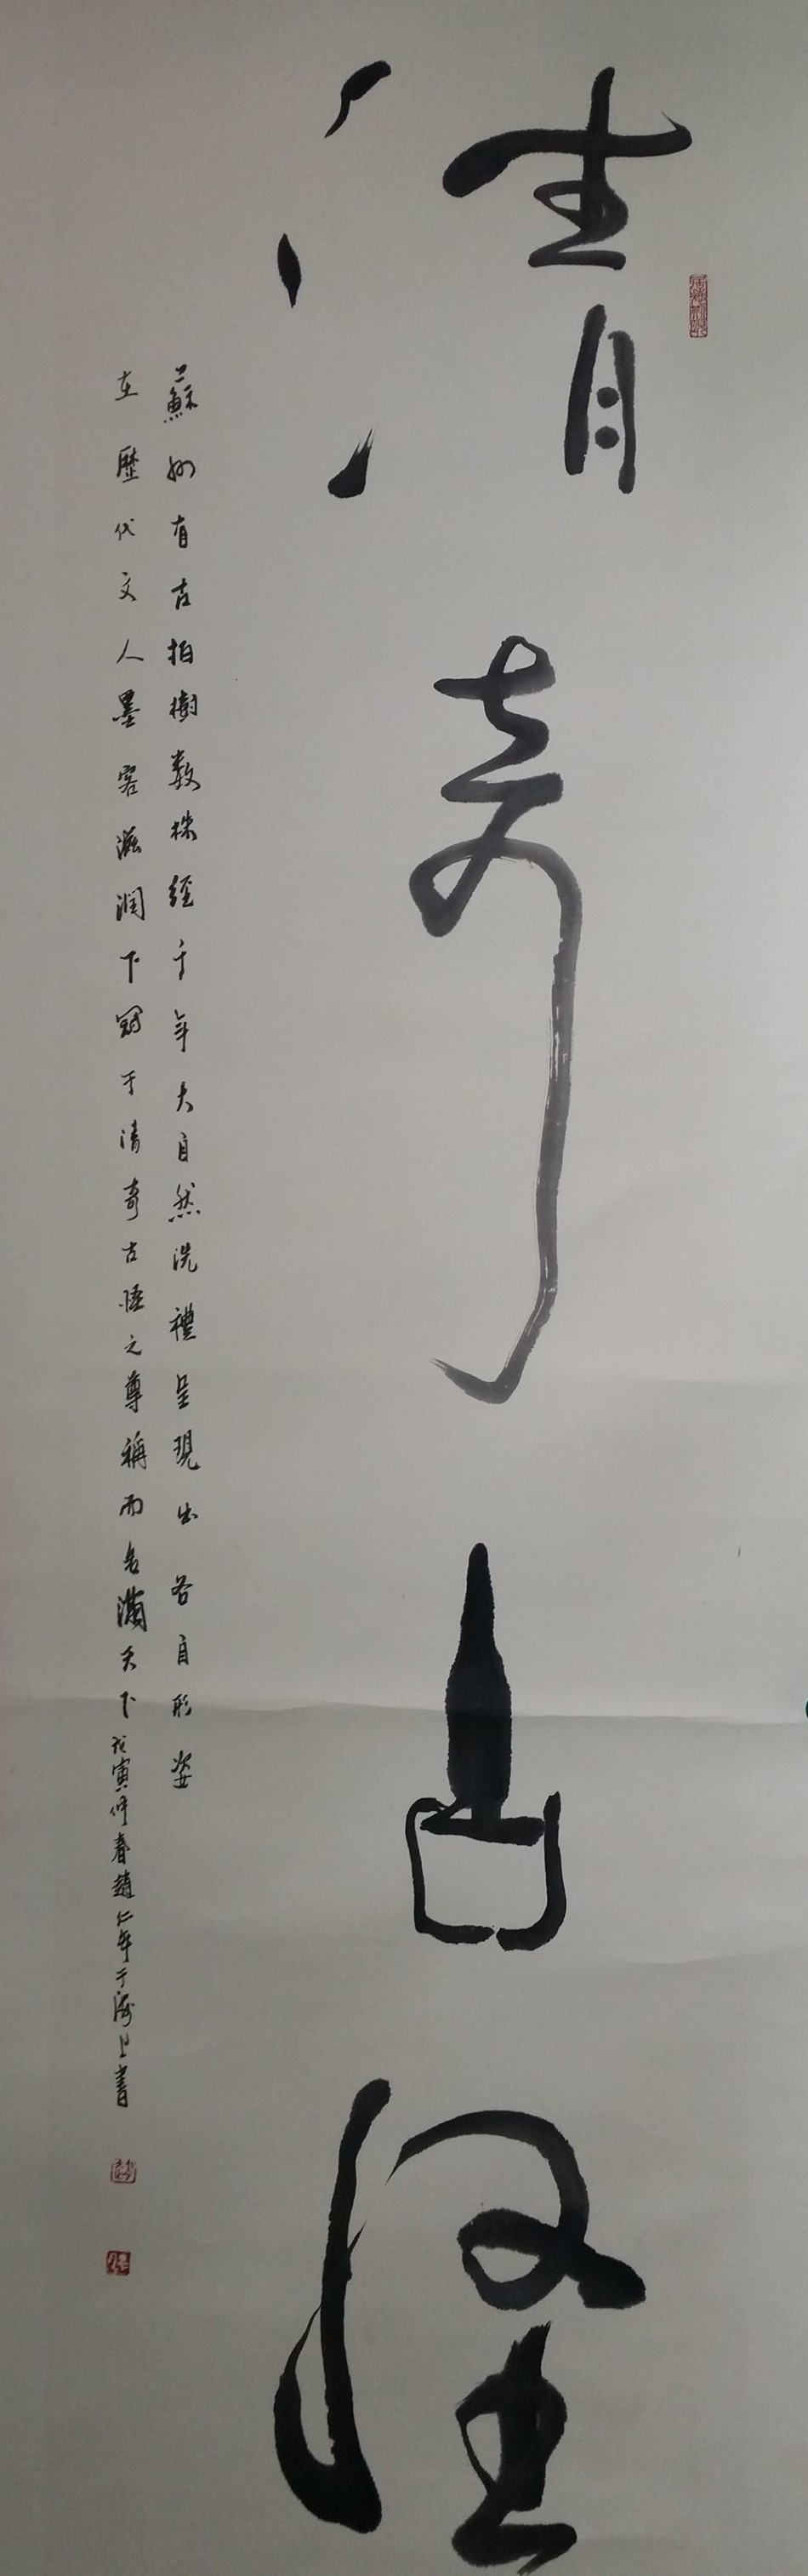 清奇古怪
蘇州有古柏樹数株經千年大自然洗禮呈現出各自形姿
在歷代文人墨客滋潤下冠于清奇古怪之尊稱而名滿天下戊寅仲春趙仁年于海上書